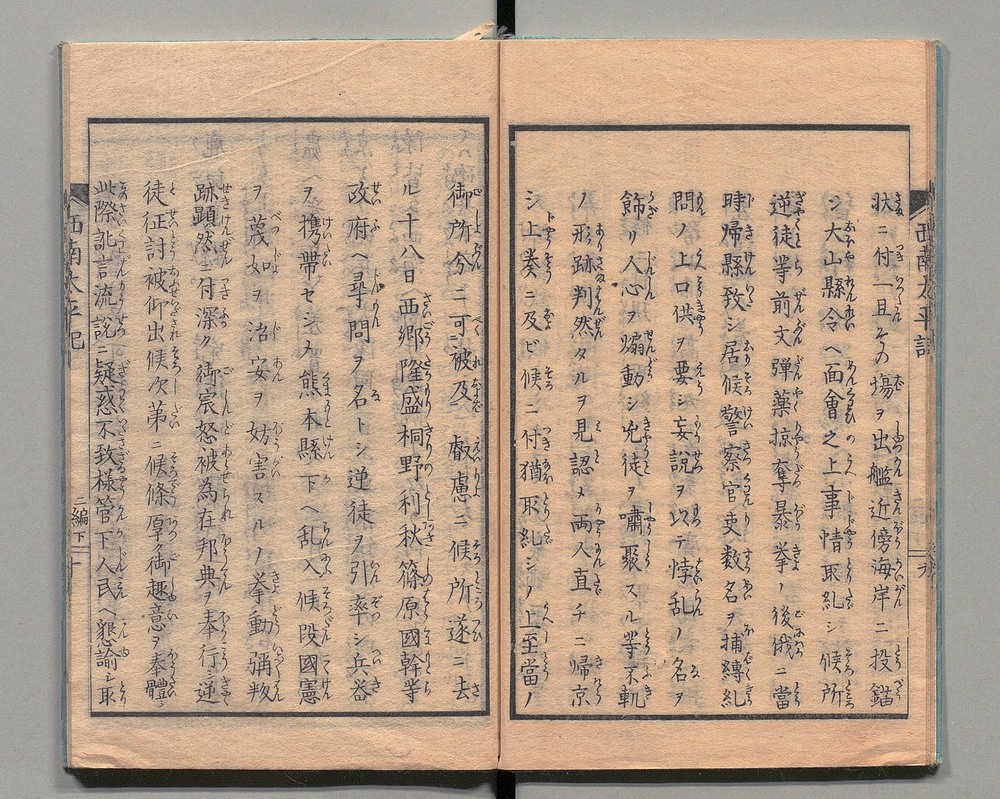 状ニ付一且その場ヲ出艦近傍海岸ニ投錨
シ大山縣令ヘ面會之上事情取糺シ候所
逆徒等前文弾藥掠奪暴挙ノ後俄ニ當
時歸縣致シ居候警察官吏数名ヲ捕縛糺
問ノ上口供ヲ要シ妄説ヲ以テ悖乱ノ名ヲ
飾リ人心ヲ煽動シ兇徒ヲ嘯聚スル等不軌
ノ形跡判然タルヲ見認メ両人直チニ帰京
シ上奏ニ及ビ候ニ付猶取糺シノ上至當ノ
御所分ニ可被及叡慮ニ候所遂ニ去
ル十八日西郷隆盛桐野利秋篠原國幹等
政府ヘ尋問ヲ名トシ逆徒ヲ引率シ兵器
ヲ携帯セシメ熊本縣下ヘ乱入候段國憲
ヲ蔑如ヲ治安ヲ妨害スルノ挙動彌叛
跡顕然ニ付深ク御宸怒被為在邦典ヲ奉行シ逆
徒征討被仰出候次第ニ候條厚ク御趣意ヲ奉體シ
此際訛言流説ニ疑惑不致様管下人民ヘ懇諭シ取
西南太平記
二編下
十
西南太平記
九